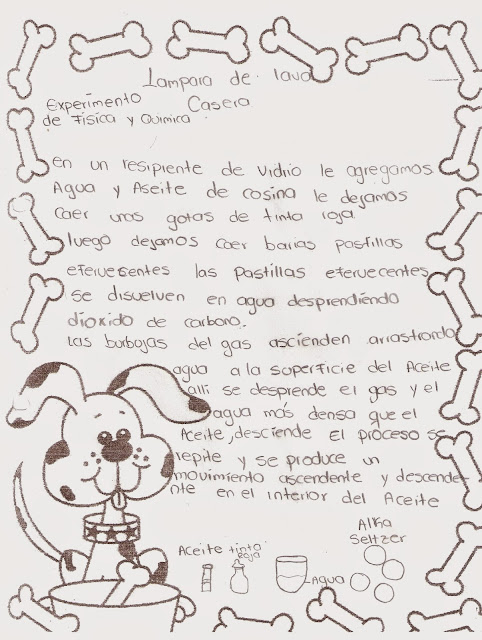 Lampara de lava
Experimento Casera
de Fisica y Quimica
en un resipiente de vidrio le agregamos
Agua y Aseite de cosina le dejamos
caer unas gotas de tinta roja
luego dejamos caer barias pastillas
efervecentes las Pastillas efervecentes
se disuelven en agua desprendiendo
dioxido de carbono.
las burbojas del gas ascienden arrastrando
agua a la superficie del Aceite
alli se desprende el gas y el
agua más densa que el
Aceite, desciende El proceso se
repite y se produce un
movimiento ascendente y descende-
nte en el interior del Aceite
Alka
Seltzer
Aceite tinto
roja
Agua